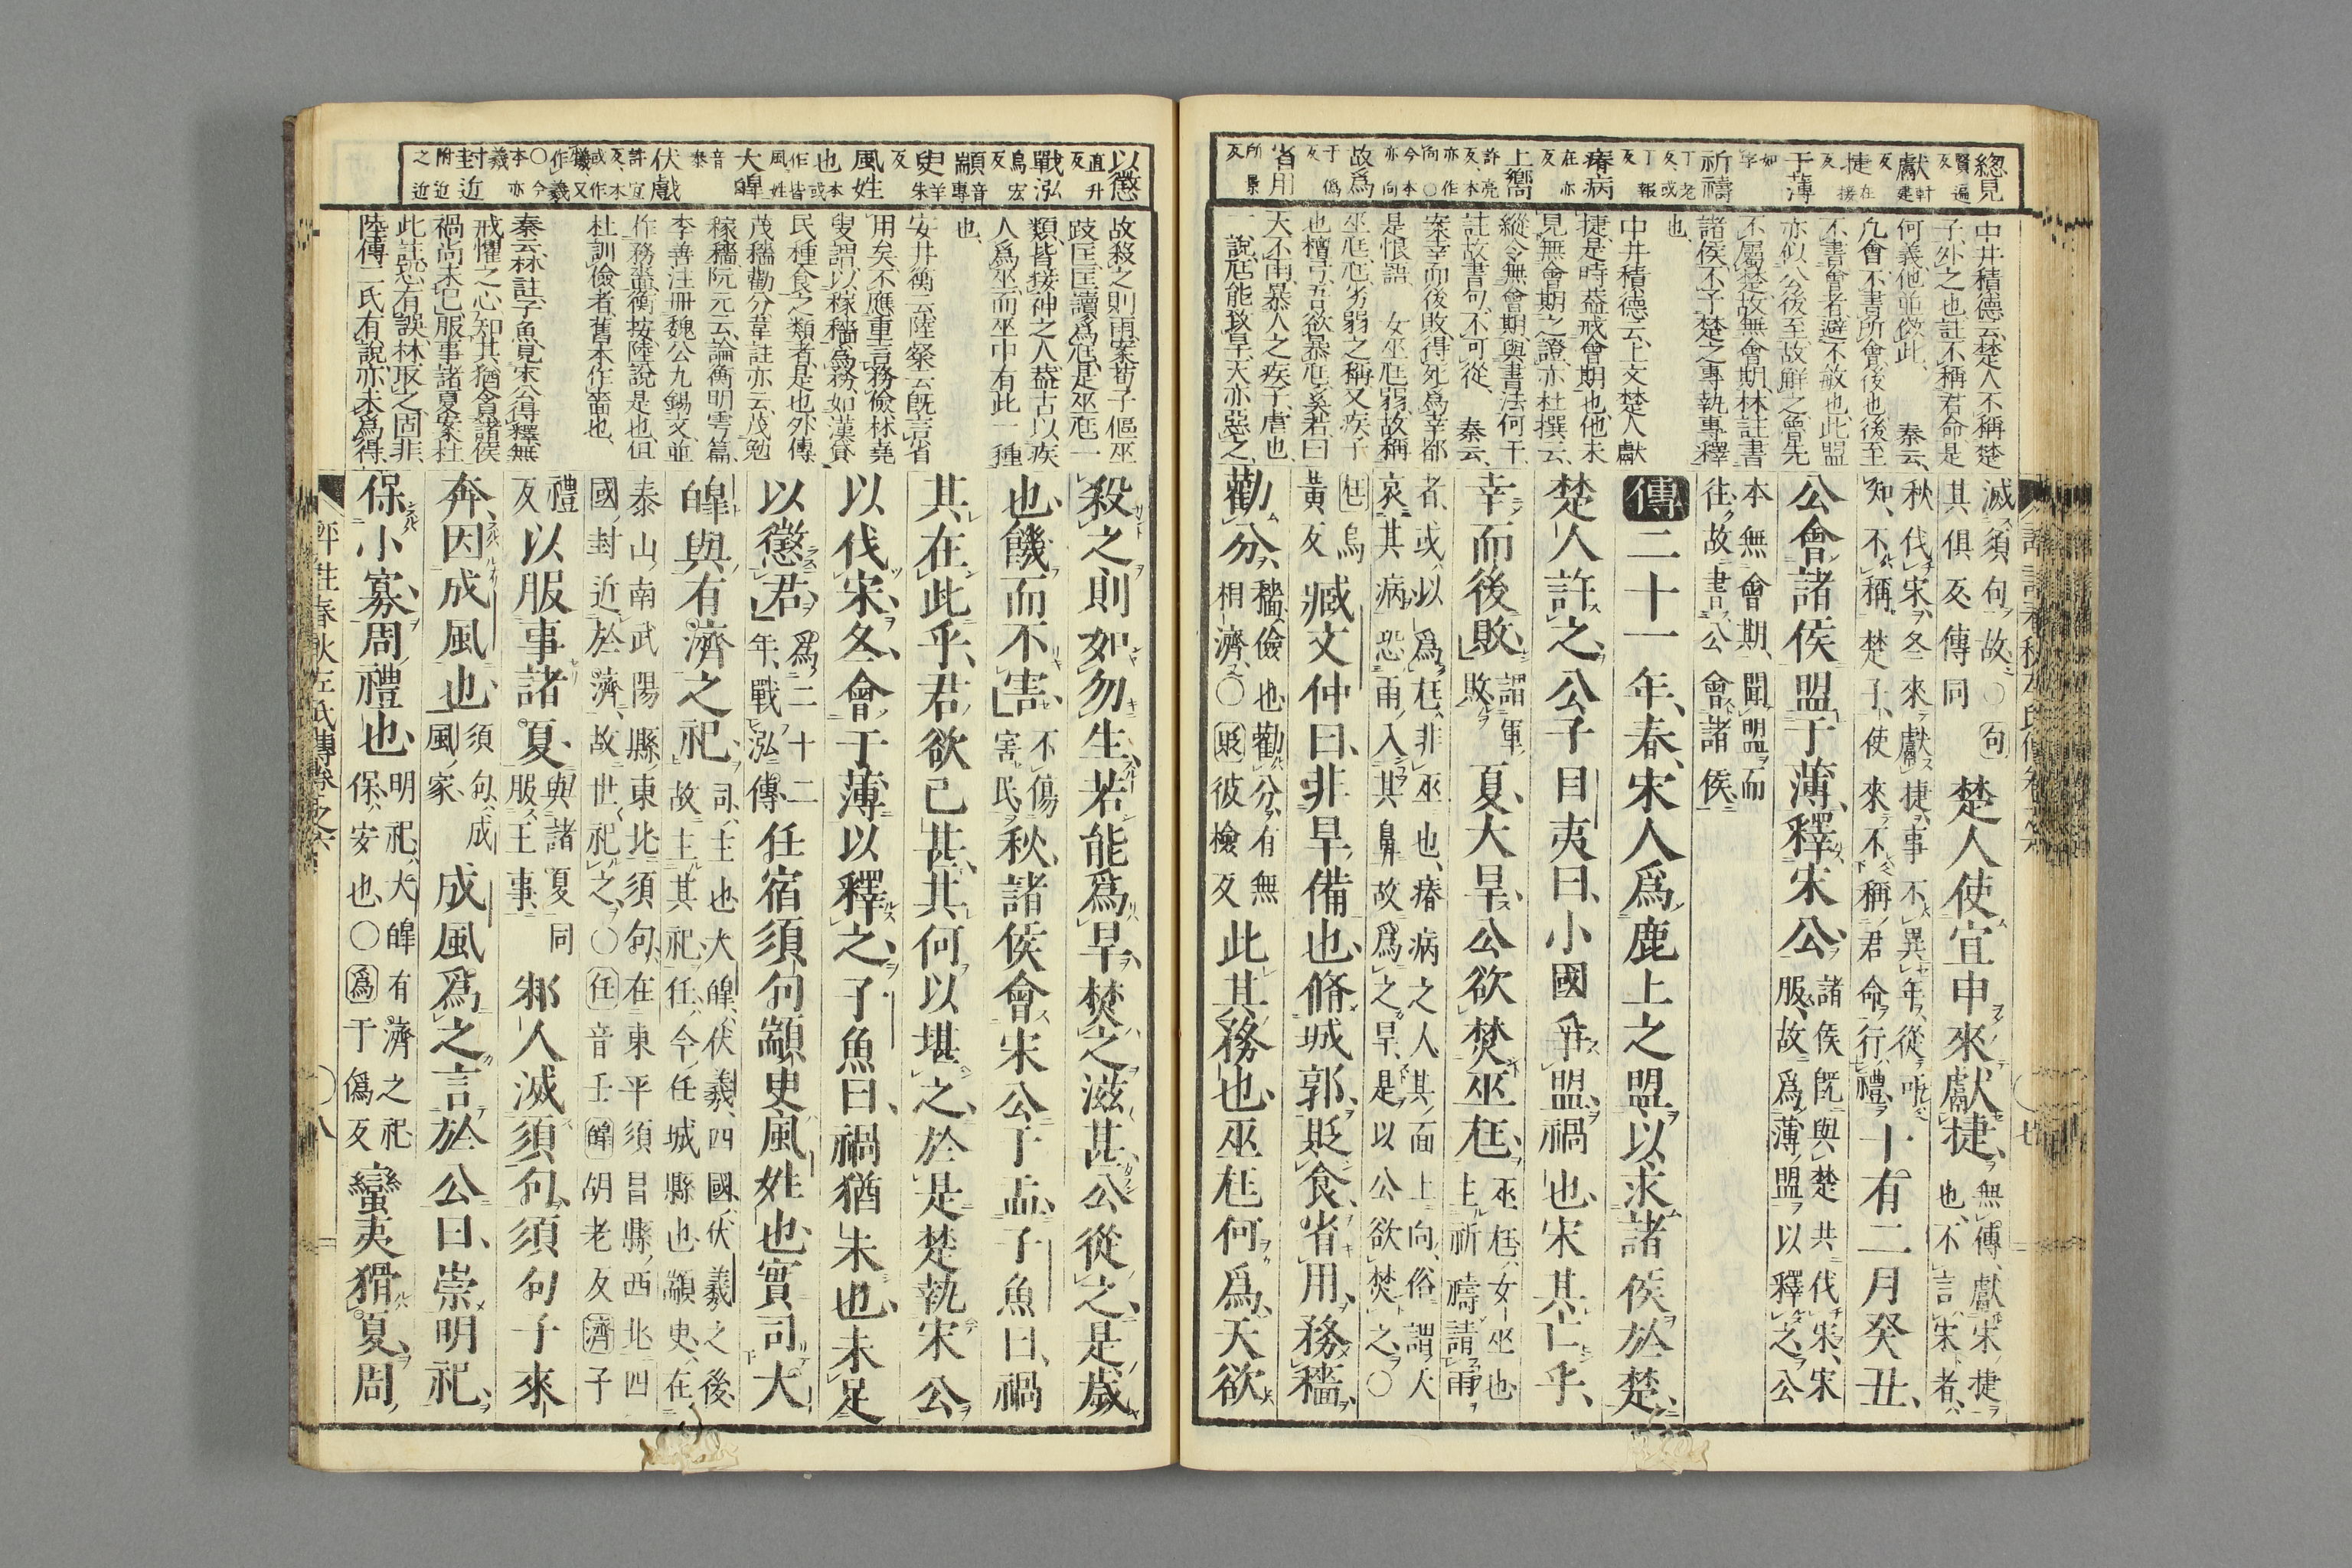 總見
賢遍反
獻
軒建反
捷
在接反
于薄
如字
祈禱
丁老反或丁報反
瘠病
在亦反
上嚮
許亮反本亦作向○今本亦向
故爲
于僞反
省用
所景反
中井積德云楚人不稱楚
子外之也註不稱君命是
何義他並倣此　秦云
凡會不書所會後也後至
不書會者避不敏也此盟
亦似公後至故解之魯先
不屬楚故無會期林註書
諸侯不予楚之專執專釋
也
中井積德云上文楚人獻
捷是時蓋戒會期也他未
見無會期之證亦杜撰云
縱令無會期與書法何干
註故書句不可從　秦云
案幸而後敗得死爲幸都
是恨語　女巫尫弱故稱
巫尫尫劣弱之稱又疾于
也檀弓吾欲暴尫奚若曰
天不雨暴人之疾子虐也
一說尫能致旱天亦惡之
滅須句故○句
其俱反傳同
楚人使宜申來獻捷
無傳獻宋捷
也不言宋者
秋伐宋冬來獻捷事不異年從可
知不稱楚子使來不稱君命行禮
十有二月癸丑
公會諸侯盟于薄釋宋公
諸侯既與楚共伐宋宋
服故爲薄盟以釋之公
本無會期聞盟而
往故書公會諸侯
傳二十一年春宋人爲鹿上之盟以求諸侯於楚
楚人許之公子目夷曰小國爭盟禍也宋其亡乎
幸而後敗
謂軍
敗
夏大旱公欲焚巫尫
巫尫女巫也
主祈禱請雨
者或以爲尫非巫也瘠病之人其面上向俗謂天
哀其病恐雨入其鼻故爲之旱是以公欲焚之○
尫烏
黃反
臧文仲曰非旱備也脩城郭貶食省用務穡
勸分
穡儉也勸分有無
相濟○貶彼檢反
此其務也巫尫何爲天欲
以懲
直升反
戰泓
烏宏反
顓
音專
臾
羊朱反
風姓
也
本或作皆風姓
大皥
音泰
伏戲
許宜反本或作犧又作羲○今本亦羲
封近
附近之近
故殺之則雨案荀子傴巫
跂匡匡讀爲尫是巫尫一
類皆接神之人蓋古以疾
人爲巫而巫中有此一種
也
安井衡云陸粲云既言省
用矣不應重言務儉林堯
叟謂以稼穡爲務如漢貸
民種食之類者是也外傳
茂穡勸分韋註亦云茂勉
稼穡阮元云論衡明雩篇
李善注冊魏公九錫文並
作務嗇衡按陸說是也但
杜訓儉者舊本作嗇也
秦云林註子魚見宋公得釋無
戒懼之心知其猶會諸侯
禍尚未已服事諸夏案杜
此註恐有誤林取之固非
陸傅二氏有說亦未爲得
殺之則如勿生若能爲旱焚之滋甚公從之是歲
也饑而不害
不傷
害民
秋諸侯會宋公于盂子魚曰禍
其在此乎君欲已甚其何以堪之於是楚執宋公
以伐宋冬會于薄以釋之子魚曰禍猶未也未足
以懲君
爲二十二
年戰泓傳
任宿須句顓臾風姓也實司大
皥與有濟之祀
司主也大皥伏羲四國伏羲之後
故主其祀任今任城縣也顓臾在
泰山南武陽縣東北須句在東平須昌縣西北四
國封近於濟故世祀之○任音壬皥胡老反濟子
禮
反
以服事諸夏
與諸夏同
服王事
邾人滅須句須句子來
奔因成風也
須句成
風家
成風爲之言於公曰崇明祀
保小寡周禮也
明祀大皥有濟之祀
保安也○爲于僞反
蠻夷猾夏周
評註春秋左氏傳卷之六
八